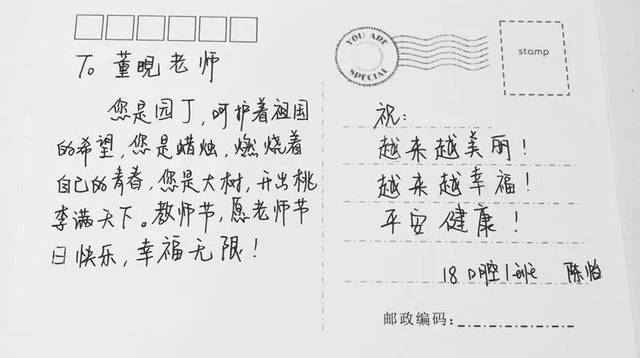 To 董晛老师
您是园丁,呵护着祖国
的希望,您是蜡烛,燃烧着
自己的青春,您是大树,开出桃
李满天下。教师节,愿老师节
日快乐,幸福无限!
YOU ARE SPECIAL
stamp
祝:
越来越美丽!
越来越幸福!
平安健康!
18口腔1班 陈怡
邮政编码: